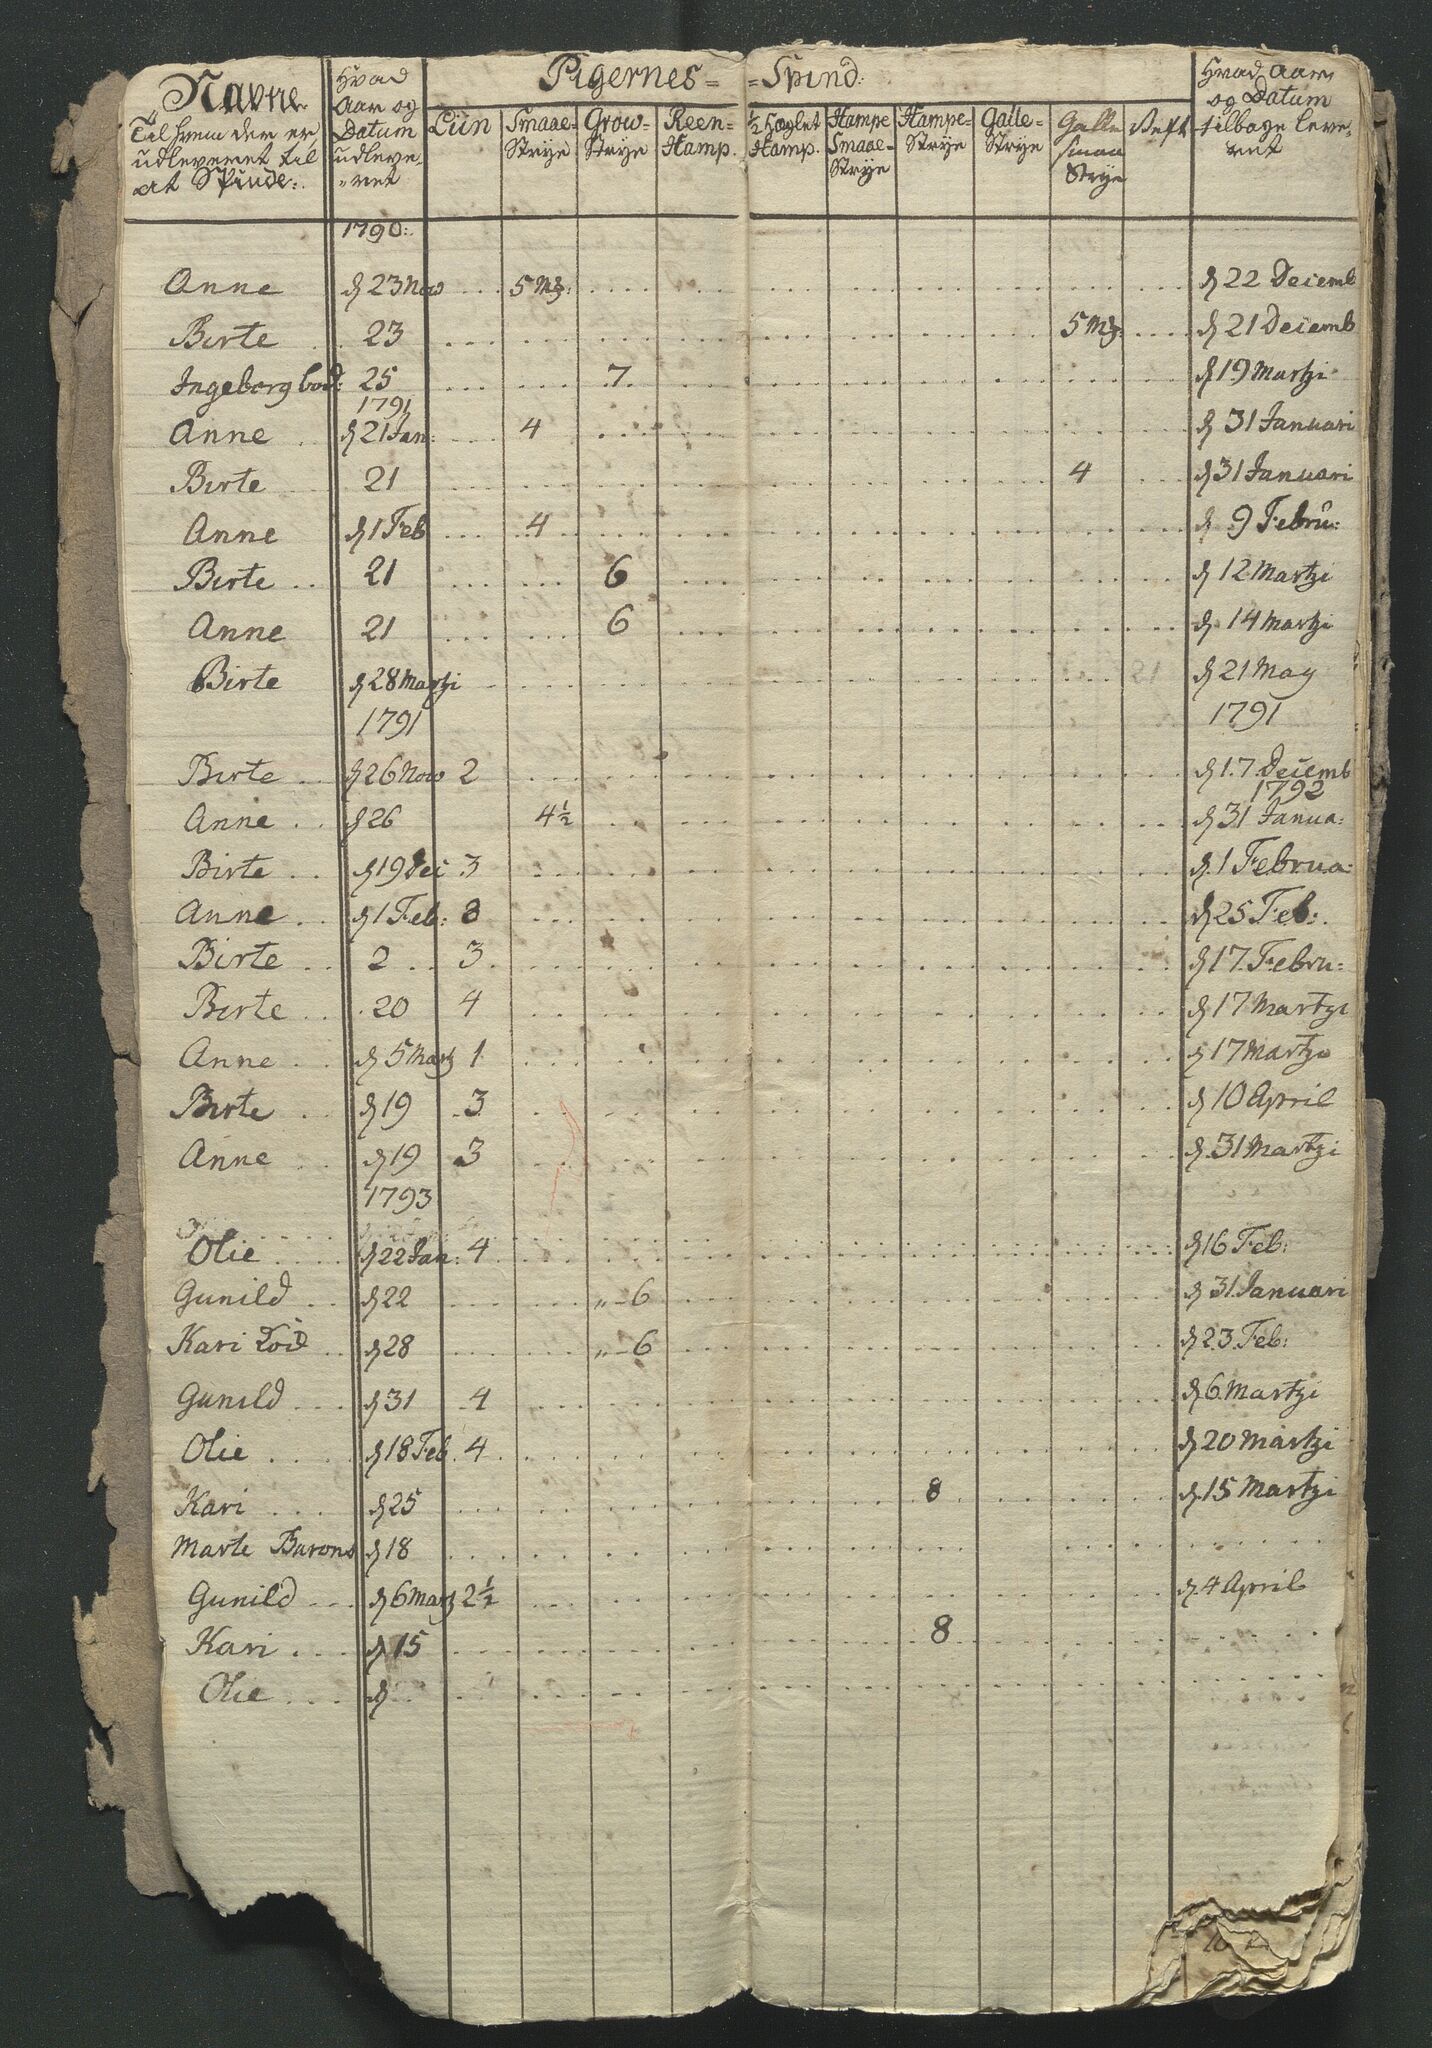 Pigernes= =Spind:
Navne Til hvem der er udleveret til at Spinde:
Hvad Aar og Datum udleveret
Liin
Smaae-Strÿe
Grow-Strÿe
Reen-Hamp.
½ Heglet Hamp.
Hampe Smaae-Strÿe
Hampe-Strÿe
Galle-Strÿe
Galle smaa Strÿe
Veft
Hvad Aar og Datum tilbage leveret
1790:
Anne d 23 Nov 5 Mk: d 22 Decemb
Birte 23 5 Mk: d 21 Decemb
Ingeborg bod: 25 7 d 19 Martzi
1791
Anne d 21 Jan: 4 d 31 Januari
Birte 21 4 d 31 Januari
Anne d 1 Feb 4 d 9 Febru:
Birte 21 6 d 12 Martzi
Anne 21 6 d 14 Martzi
Birte d 28 Martzi d 21 May
1791 1791
Birte d 26 Now 2 d 17 Decemb
1792
Anne d 26 4½ d 31 Janua:
Birte d 19 Dec 3 d 1 Februa:
Anne d 1 Feb: 8 d 25 Feb:
Birte 2 3 d 17 Febru:
Birte 20 4 d 17 Martzi
Anne d 5 Martz 1 d 17 Martzi
Birte d 19 3 d 10 April
Anne d 19 3 d 31 Martzi
1793
Olie d 22 Jan: 4 d 16 Feb:
Gunild d 22 „-6 d 31 Januari
Kari d 28 „-6 d 23 Feb:
Gunild d 31 4 d 6 Martzi
Olie d 18 Feb 4 d 20 Martzi
Kari d 25 8 d 15 Martzi
Marte Barons d 18
Gunild d 6 Martz 2½ d 4 April
Kari d 15 8
Olie d